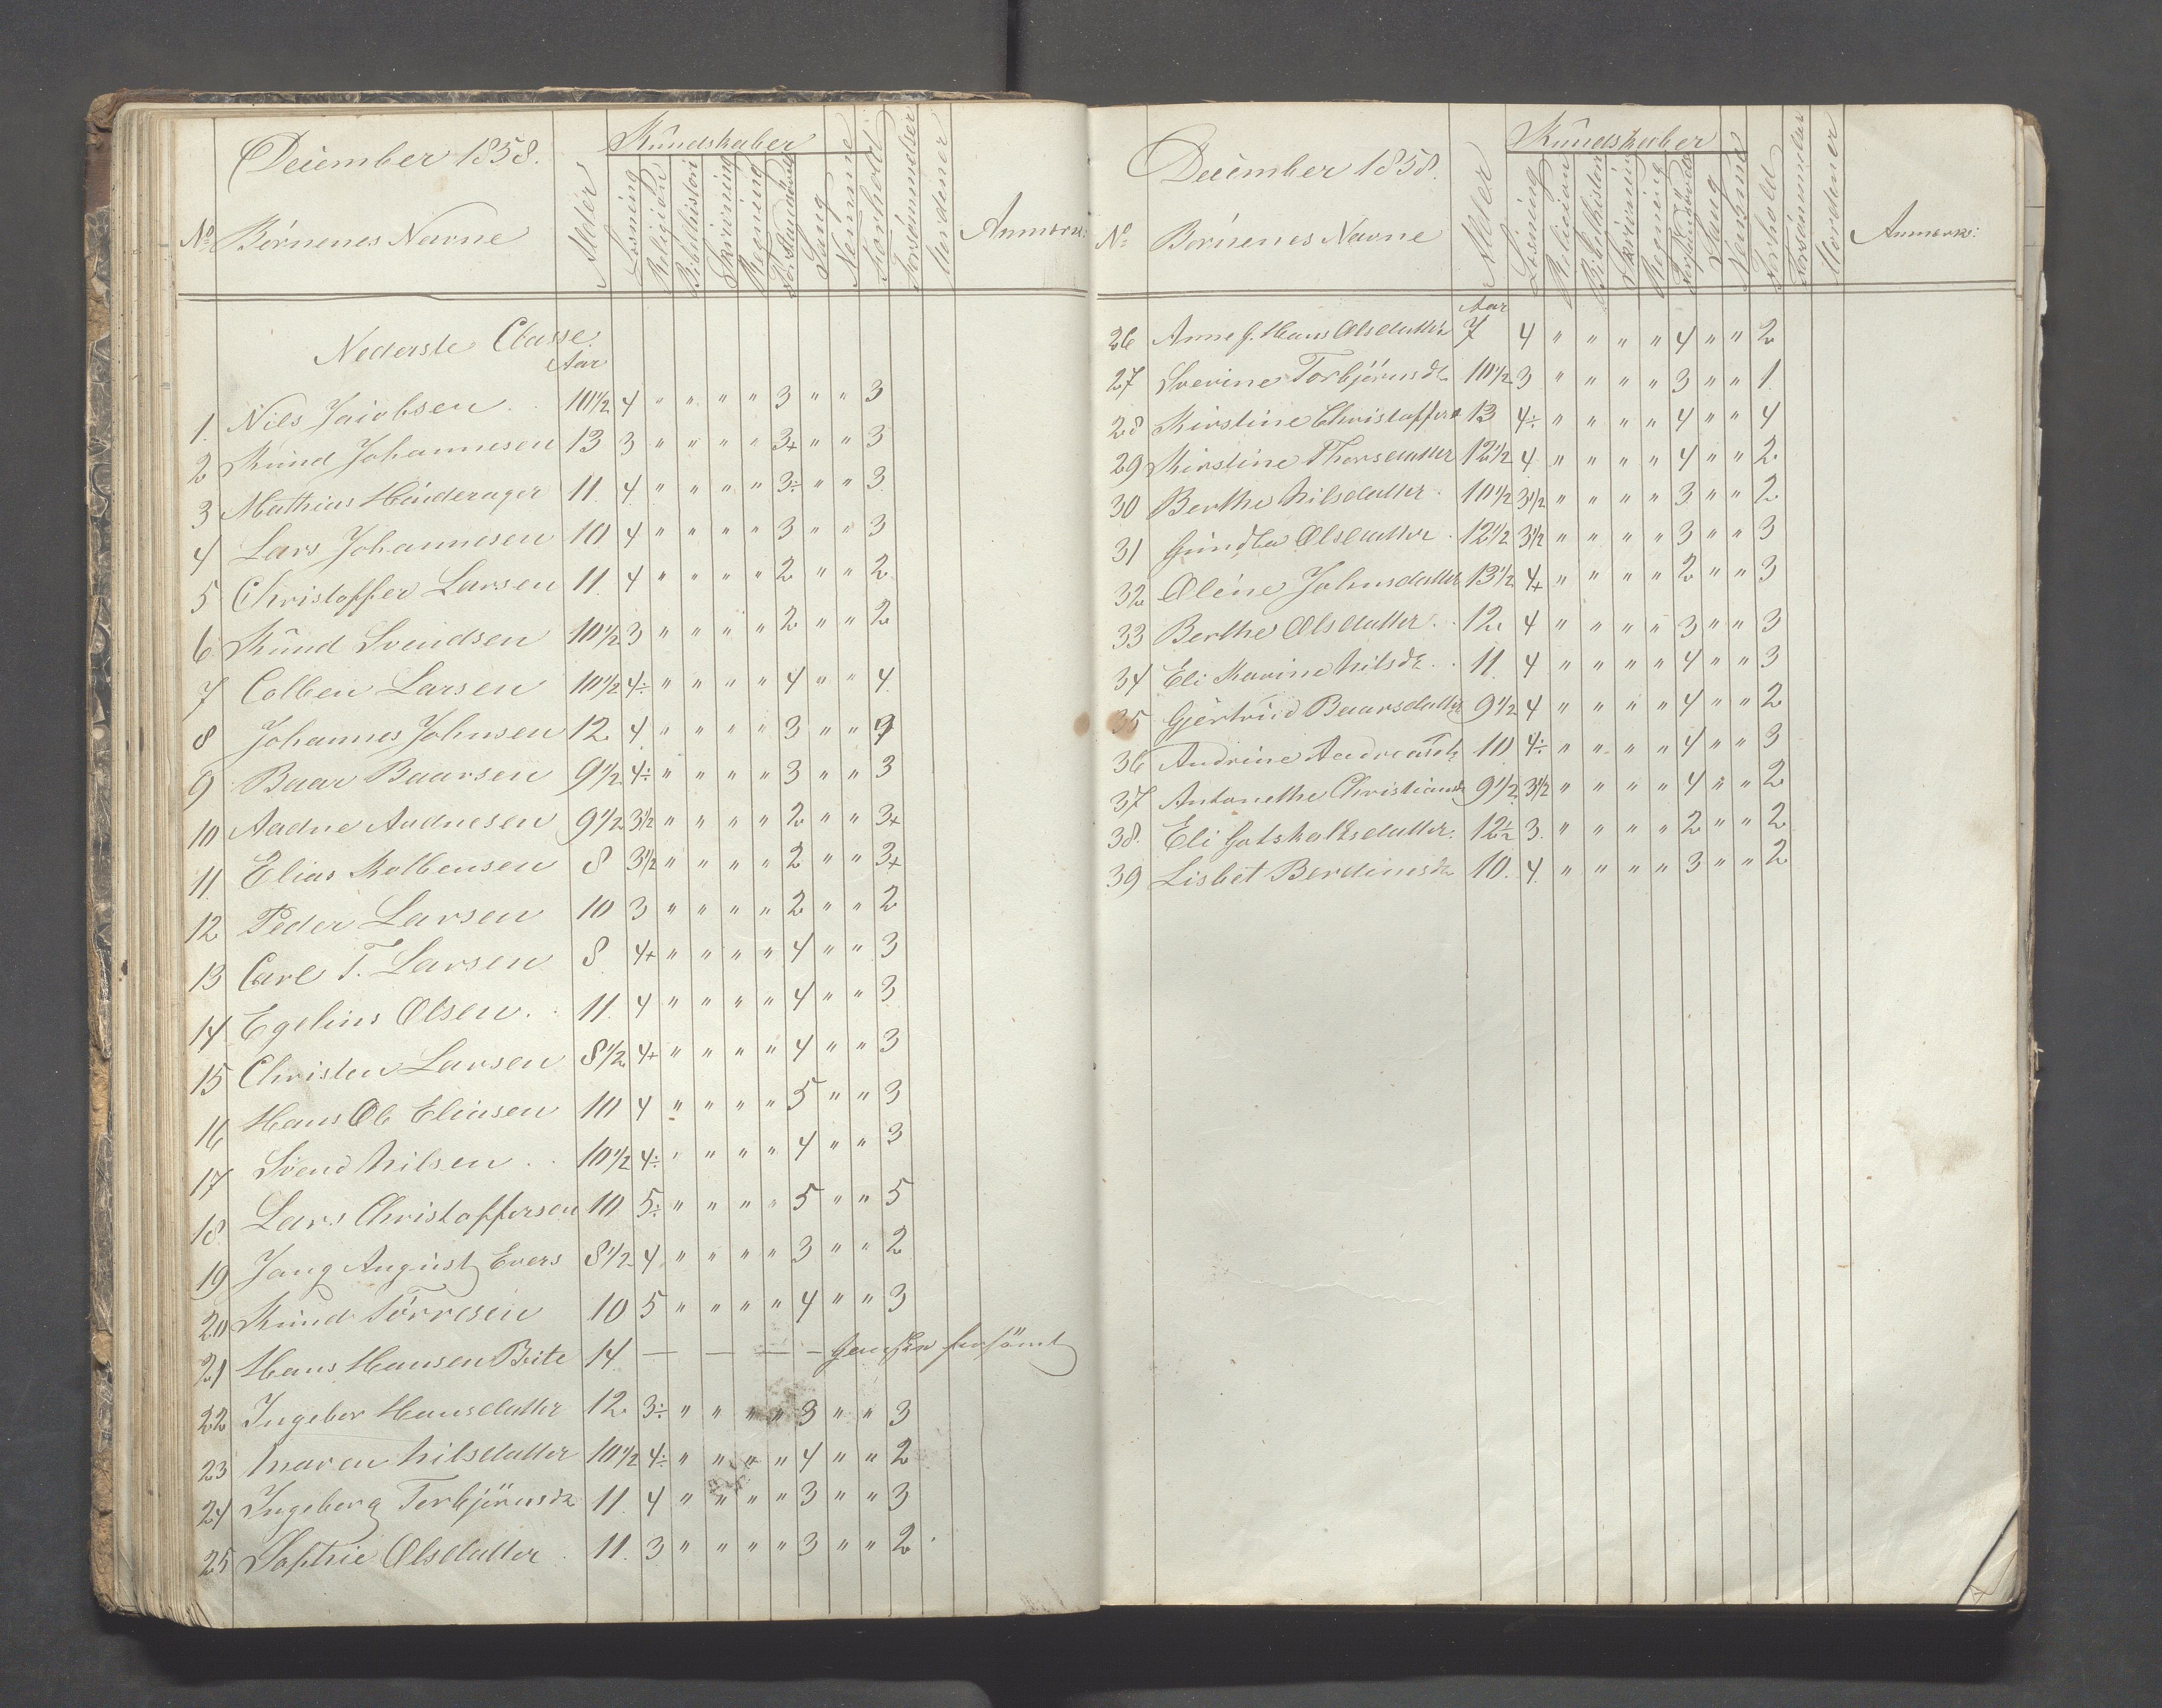 December 1858.
Kundskaber
No Börnenes Navne Alder Læsning Religion Bibelhistori Skrivning Regning Sang Nemme Forhold Forsömmelser Anmærk:
Nederste Classe.
Aar
1. Nils Jacobsen . . 10 1/2 4 " " " " 3 " " 3
2 Knud Johannesen 13 3 " " " " 3+ " " 3
3 Mathias Hinderager 11. 4. " " " " 3÷ " " 3
4 Lars Johannesen 10 4 " " " " 3 " " 3
5 Christoffer Larsen 11. 4 " " " " 2 " " 2
6 Knud Svendsen 10 1/2 3 " " " " 2 " " 2
7 Colben Larsen 10 1/2 4÷ " " " " 4 " " 4
8 Johannes Johnsen 12 4 " " " " 3 " "
9 Baar Baarsen 9 1/2 4÷ " " " " 3 " " 3
10 Aadne Aadnesen 9 1/2 3 1/2 " " " " 2 " " 3+
11. Elias Kolbensen 8 3 1/2 " " " " 2 " " 3+
12 Peder Larsen 10 3 " " " " 2 " " 2
13 Carl T. Larsen 8 4+ " " " " 4 " " 3
14 Egelius Olsen . . 11. 4 " " " " 4 " " 3
15 Christen Larsen 8 1/2 4+ " " " " 4 " " 3
16 Hans Ol Eliasen 10 4 " " " " 5 " " 3
17 Svend Nilsen . . 10 1/2 4÷ " " " " 4 " " 3
18 Lars Christoffersen 10 5÷ " " " " 5 " " 5
19 August Evers 8 1/2 4 " " " " 3 " " 2
20 Knud Törresen 10 5 " " " " 4 " " 3
21 Hans Hansen 14 — — — — forsömt
22 Ingebor Hansdatter 12 3÷ " " " " 3 " " 3
23 Maren Nilsdatter 10 1/2 4÷ " " " " 4 " " 2
24 Ingeborg Torbjörnsdr 11. 4 " " " " 3 " " 3
25 Sophie Olsdatter . 11. 3 " " " " 3 " " 2
December 1858.
Kundskaber
No Börnenes Navne Alder Læsning Religion Bibelhistori Skrivning Regning Sang Nemme Forhold Forsömmelser Anmærk:
Aar
26 Anne G. Hans Olsdatter 7 4 " " " " 4 " " 2
27 Severine Torbjörnsdr 10 1/2 3 " " " " 3 " " 1.
28 Kirstine Christoffers 13 4÷ " " " " 4 " " 4
29 Kirstine Thorsdatter 12 1/2 4 " " " " 4 " " 2
30 Berthe Nilsdatter . 10 1/2 3 1/2 " " " " 3 " " 2
31 Gundla Olsdatter . 12 1/2 3 1/2 " " " " 3 " " 3
32 Oline Johnsdatter 13 1/2 4+ " " " " 2 " " 3
33 Berthe Olsdatter . . 12. 4 " " " " 3 " " 3
34 Eli Karine Nilsdr . . 11. 4 " " " " 4 " " 3
35 Gjertrud Baarsdatter 9 1/2 4 " " " " 4 " " 2
36 Andrine Andreasdr 10 4÷ " " " " 4 " " 3
37 Antonethe Christiansdr 9 1/2 3 1/2 " " " " 4 " " 2
38. Eli Gotskalksdatter. 12 1/2 3. " " " " 2 " " 2
39 Lisbet Berdinesdr 10. 4. " " " " 3 " " 2